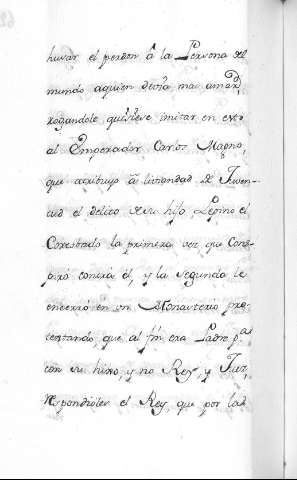 huvar el perdon â la Persona del
mundo aquien devia mas amor,
rogandole quisiese imitar en esto
al Emperador Carlos Magno,
que atribuyo â liviandad de Juven-
tud el delito de su hijo Pepino el
Corcobado la primera vez que Cons-
piro contra él, y la segunda le
encerró en un Monasterio pro-
textando, que al fin era Padre p.ª
con su hixo, y no Rey, y Juez,
Respondioles el Rey, que por las